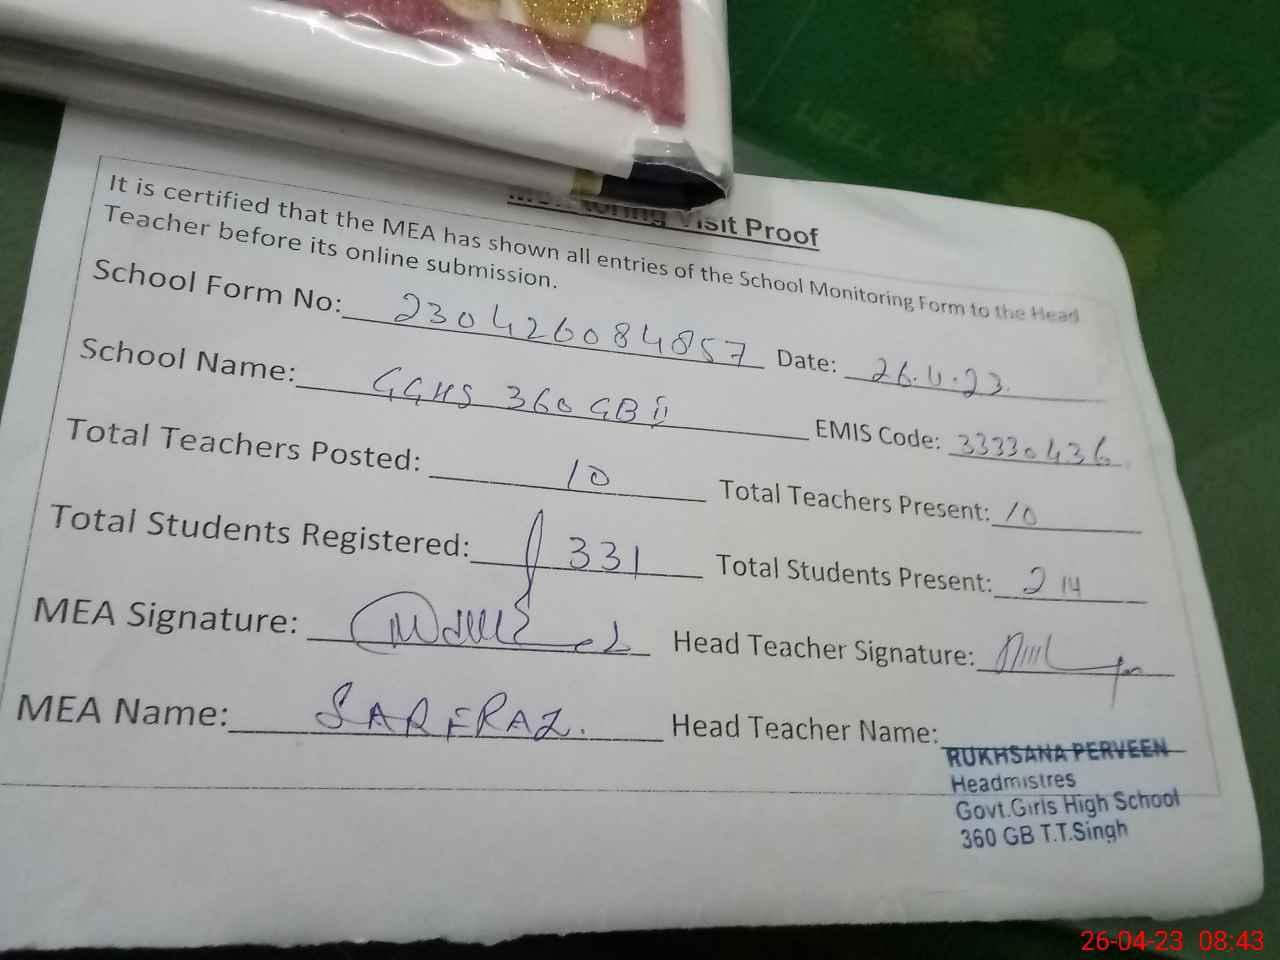 Monitoring Visit Proof
It is certified that the MEA has shown all entries of the School Monitoring Form to the Head
Teacher before its online submission.
School Form No: 230426084857 Date: 26.4.23.
School Name: GGHS 360 GB ii EMIS Code: 33330436
Total Teachers Posted: 10 Total Teachers Present: 10
Total Students Registered: 331 Total Students Present: 214
MEA Signature: Head Teacher Signature:
MEA Name: SARFRAZ. Head Teacher Name:
RUKHSANA PERVEEN
Headmistres
Govt.Girls High School
360 GB T.T.Singh
26-04-23 08:43